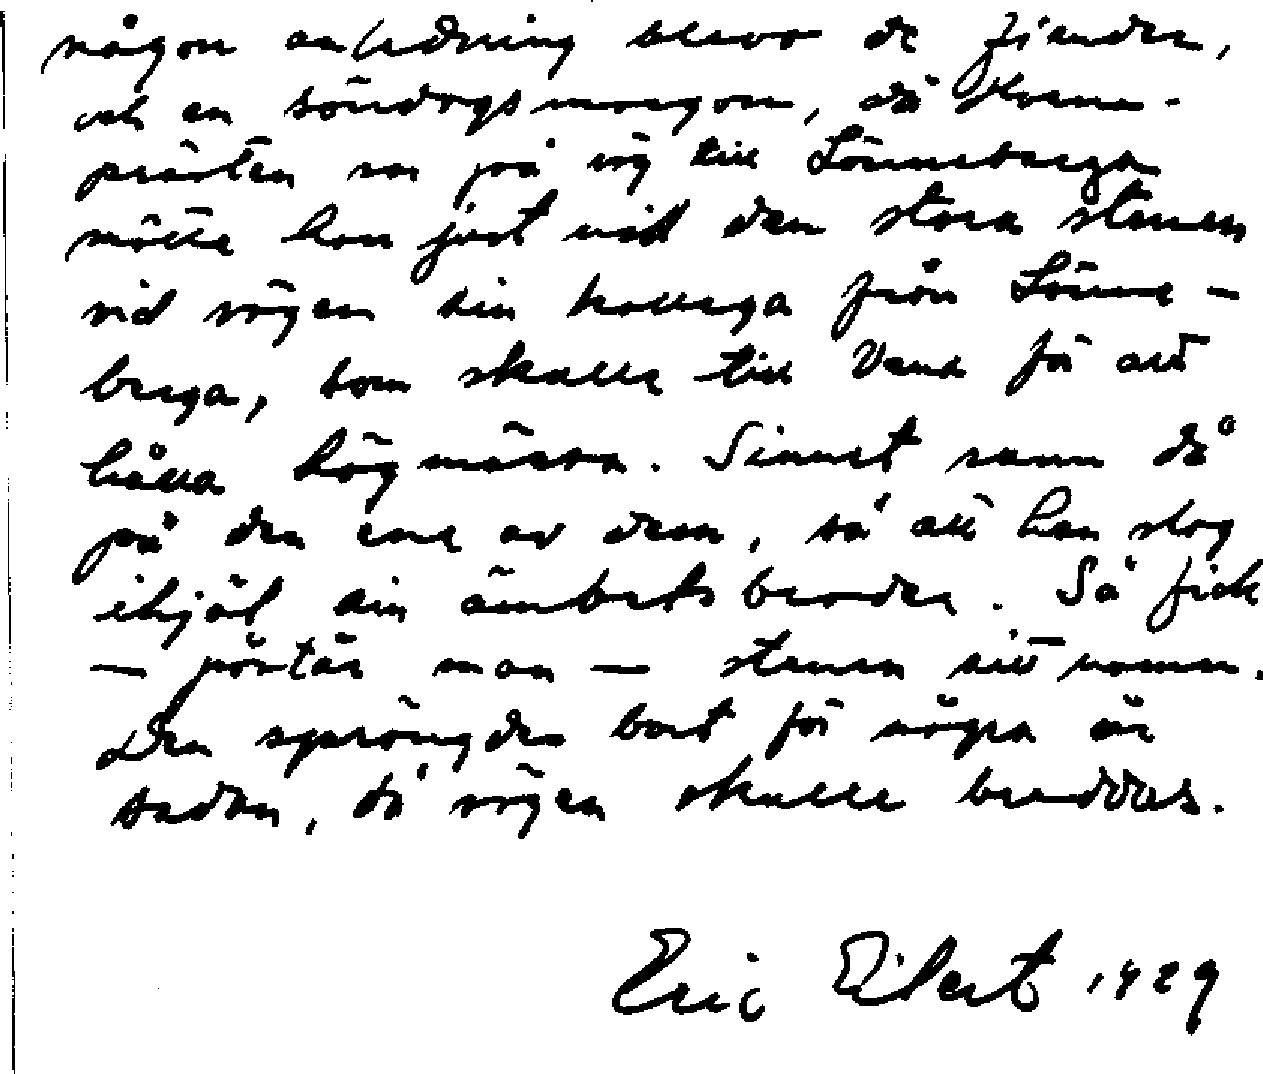 någon anledning blevo de fiender,
och en söndagsmorgon, då
prästen var på väg till Lönneberga
mötte han just vid den stora stenen
vid vägen sin kollega från Lönne-
berga, som skulle till Vena för att
hålla högmässa. Sinnet rann då
på den ene av dem, så att han slog
ihjäl sin ämbetsbroder. Så fick
— påstår man — stenen sitt namn.
Den sprängdes bort för några år
sedan, då vägen skulle breddas.
Eric Eilert 1929